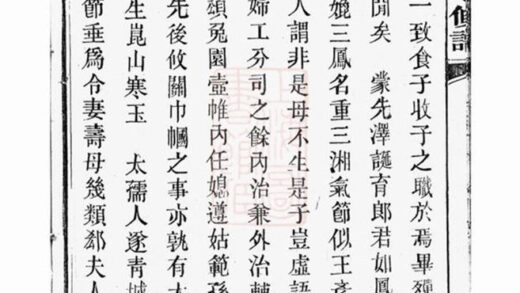 譜
一致食子收子之職於焉畢
聞矣 蒙先澤誕育郎君如鳳
媲三鳳名重三湘氣節似王彥
人謂非是母不生是子豈虛語
婦工分司之餘內治兼外治輔
頌兔園壼帷內任媳遵姑範孫
先後攸關巾幗之事亦孰有大
生崑山寒玉 太孺人遂青城
節垂爲令妻壽母幾類郄夫人